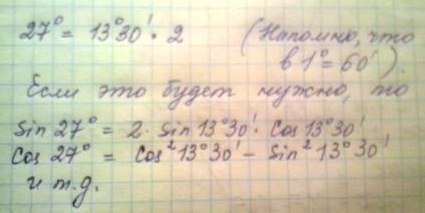 27° = 13°30' · 2 (Напомню, что
в 1° = 60').
Если это будет нужно, то
Sin 27° = 2 · Sin 13°30' · Cos 13°30'
Cos 27° = Cos² 13°30' - Sin² 13°30'
и т.д.